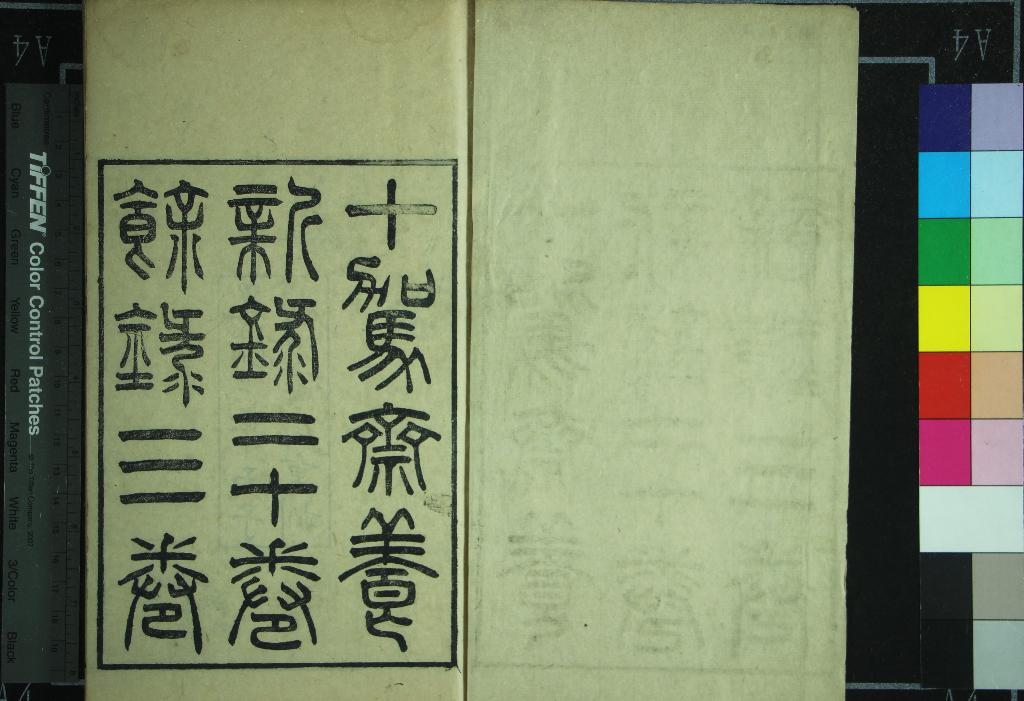 十駕齋養
新錄二十卷
餘錄三卷
A4
A4
TIFFEN Color Control Patches
Blue Cyan Green Yellow Red Magenta White 3/Color Black
© The Tiffen Company, 2007